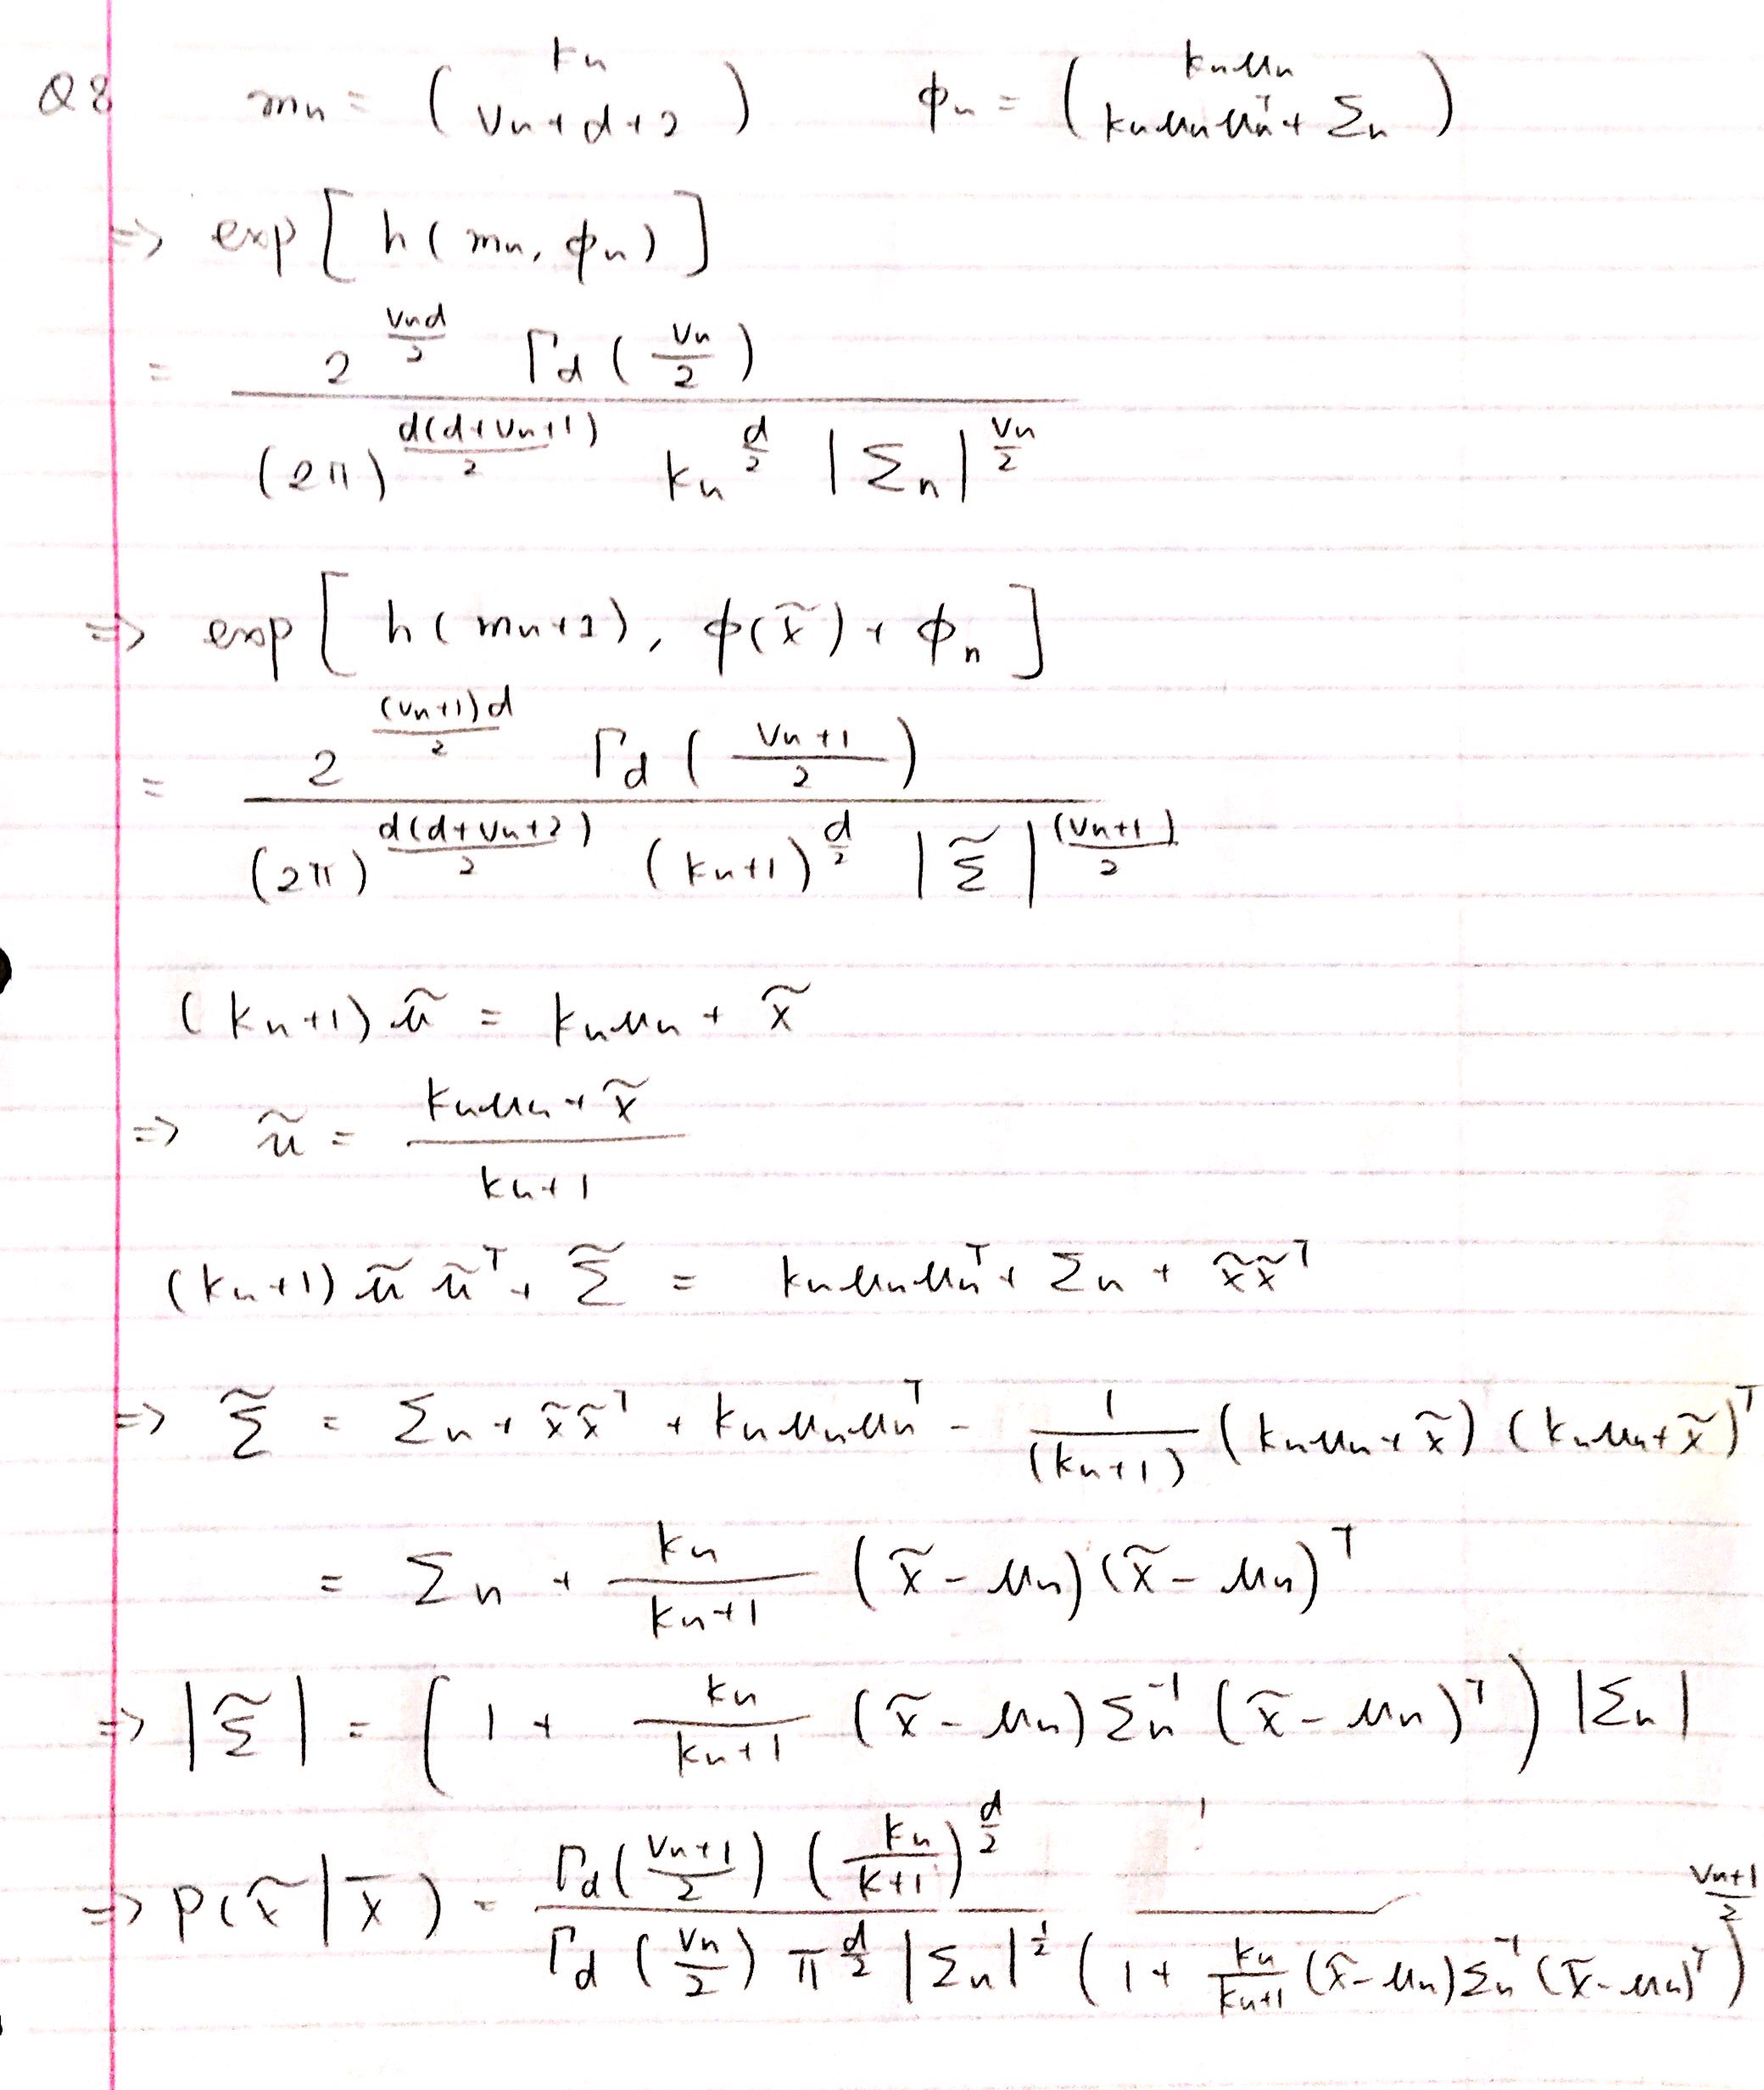 Q8 mₙ = ( kₙ / vₙ+d+2 ) φₙ = ( kₙμₙ / kₙμₙμₙᵀ + Σₙ )
=> exp[ h(mₙ, φₙ) ]
= 2^(vₙd/2) Γd(vₙ/2) / (2π)^(d(d+vₙ+1)/2) kₙ^(d/2) |Σₙ|^(vₙ/2)
=> exp[ h(mₙ+1), φ(x̃) + φₙ ]
= 2^((vₙ+1)d/2) Γd((vₙ+1)/2) / (2π)^(d(d+vₙ+2)/2) (kₙ+1)^(d/2) |Σ̃|^((vₙ+1)/2)
(kₙ+1) μ̃ = kₙμₙ + x̃
=> μ̃ = kₙμₙ + x̃ / kₙ+1
(kₙ+1) μ̃ μ̃ᵀ + Σ̃ = kₙμₙμₙᵀ + Σₙ + x̃x̃ᵀ
=> Σ̃ = Σₙ + x̃x̃ᵀ + kₙμₙμₙᵀ - 1/(kₙ+1) (kₙμₙ+x̃) (kₙμₙ+x̃)ᵀ
= Σₙ + kₙ/kₙ+1 (x̃ - μₙ)(x̃ - μₙ)ᵀ
=> |Σ̃| = ( 1 + kₙ/kₙ+1 (x̃ - μₙ) Σₙ⁻¹ (x̃ - μₙ)ᵀ ) |Σₙ|
=> p(x̃ | x̄) = Γd((vₙ+1)/2) (kₙ/k+1)^(d/2) / Γd(vₙ/2) π^(d/2) |Σₙ|^(1/2) 1 / (1 + kₙ/kₙ+1 (x̃ - μₙ) Σₙ⁻¹ (x̃ - μₙ)ᵀ)^((vₙ+1)/2)